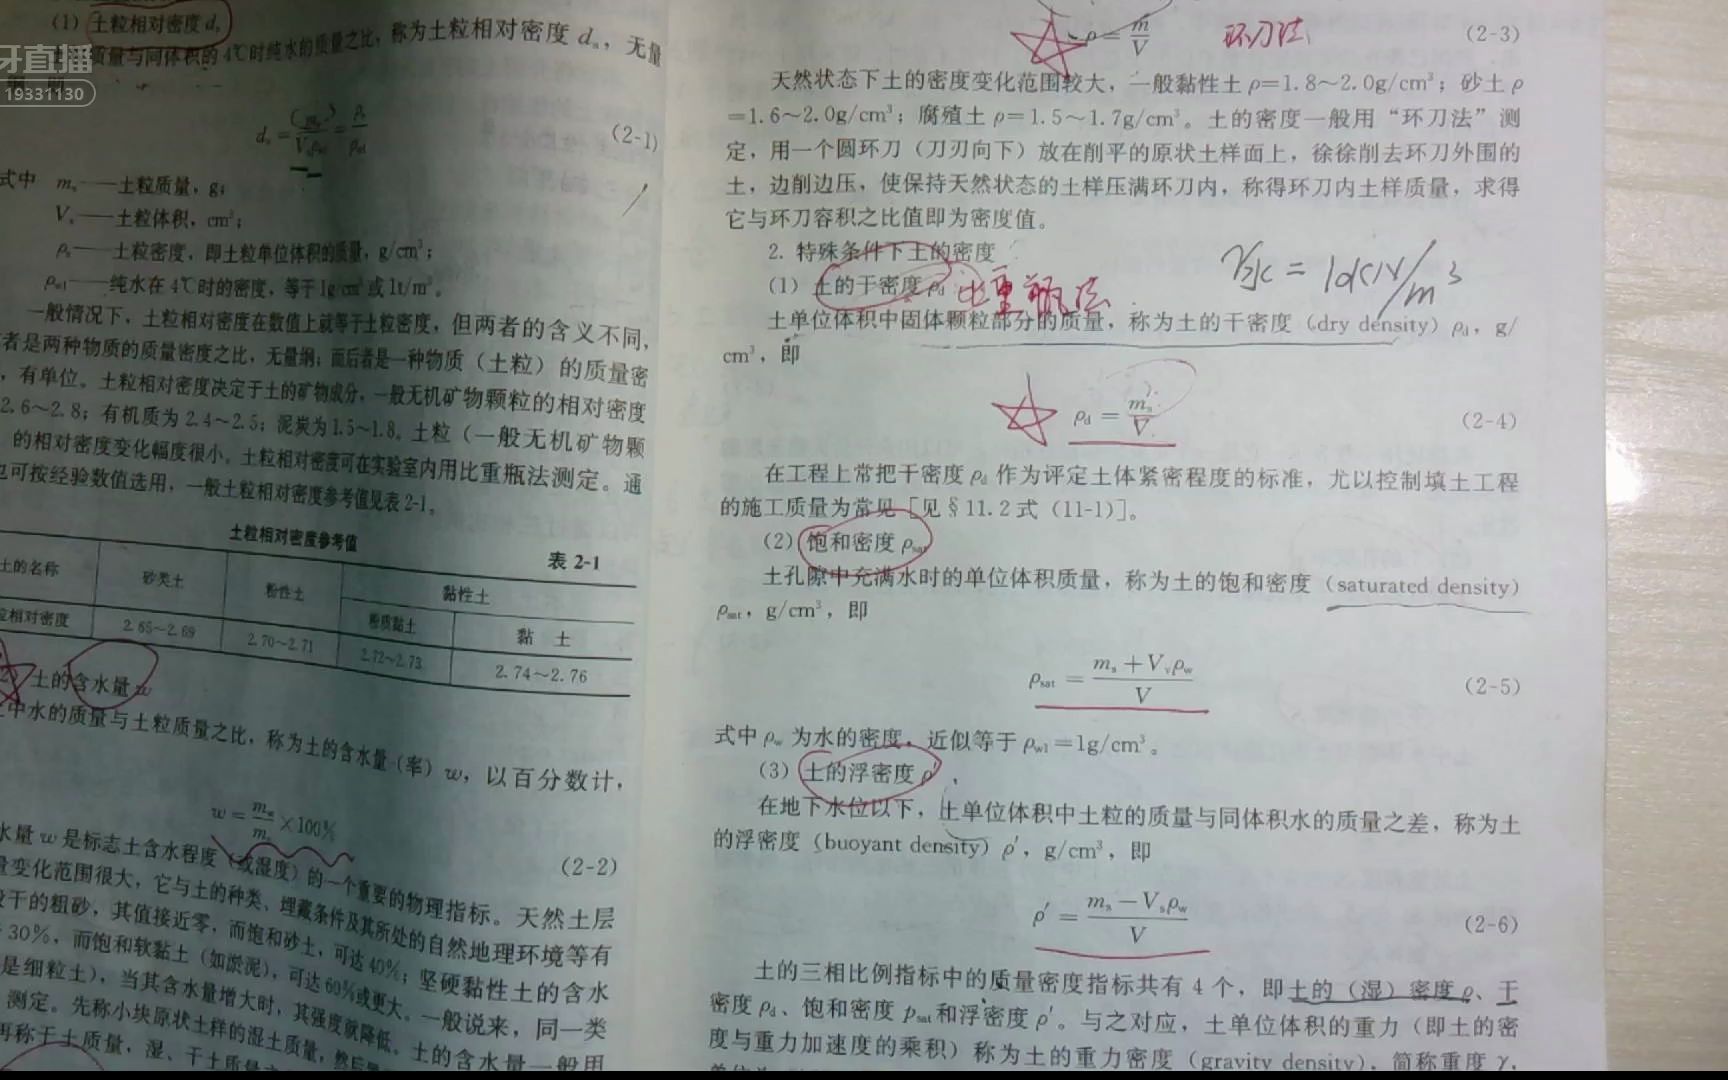 牙直播
19331130
(1) 土粒相对密度 dₛ
质量与同体积的4℃时纯水的质量之比，称为土粒相对密度 dₛ，无量
(2-1)
式中 mₛ——土粒质量，g；
Vₛ——土粒体积，cm³；
ρₛ——土粒密度，即土粒单位体积的质量，g/cm³；
ρw1——纯水在4℃时的密度，等于1g/cm³或1t/m³。
一般情况下，土粒相对密度在数值上就等于土粒密度，但两者的含义不同，
者是两种物质的质量密度之比，无量纲；而后者是一种物质（土粒）的质量密
，有单位。土粒相对密度决定于土的矿物成分，一般无机矿物颗粒的相对密度
2.6～2.8；有机质为2.4～2.5；泥炭为1.5～1.8。土粒（一般无机矿物颗
的相对密度变化幅度很小。土粒相对密度可在实验室内用比重瓶法测定。通
也可按经验数值选用，一般土粒相对密度参考值见表2-1。
土粒相对密度参考值
表 2-1
土的名称 砂类土 粉性土 黏性土
粉质黏土 黏 土
粒相对密度 2.65～2.69 2.70～2.71 2.72～2.73 2.74～2.76
土的含水量 w
中水的质量与土粒质量之比，称为土的含水量（率）w，以百分数计，
w = mw/mₛ ×100%
(2-2)
水量 w 是标志土含水程度（或湿度）的一个重要的物理指标。天然土层
量变化范围很大，它与土的种类、埋藏条件及其所处的自然地理环境等有
干的粗砂，其值接近零，而饱和砂土，可达40%；坚硬黏性土的含水
30%，而饱和软黏土（如淤泥），可达60%或更大。一般说来，同一类
是细粒土），当其含水量增大时，其强度就降低。土的含水量一般用
测定。先称小块原状土样的湿土质量，然后
再称干土质量，湿、干土质
ρ = m/V (2-3)
环刀法
天然状态下土的密度变化范围较大，一般黏性土 ρ=1.8～2.0g/cm³；砂土 ρ
=1.6～2.0g/cm³；腐殖土 ρ=1.5～1.7g/cm³。土的密度一般用“环刀法”测
定，用一个圆环刀（刀刃向下）放在削平的原状土样面上，徐徐削去环刀外围的
土，边削边压，使保持天然状态的土样压满环刀内，称得环刀内土样质量，求得
它与环刀容积之比值即为密度值。
2. 特殊条件下土的密度
(1) 土的干密度 ρd
比重瓶法
γ水 = 10kN/m³
土单位体积中固体颗粒部分的质量，称为土的干密度（dry density）ρd，g/
cm³，即
ρd = mₛ/V (2-4)
在工程上常把干密度 ρd 作为评定土体紧密程度的标准，尤以控制填土工程
的施工质量为常见［见§11.2式（11-1）］。
(2) 饱和密度 ρsat
土孔隙中充满水时的单位体积质量，称为土的饱和密度（saturated density）
ρsat，g/cm³，即
ρsat = (mₛ + Vᵥρw)/V (2-5)
式中 ρw 为水的密度，近似等于 ρw1=1g/cm³。
(3) 土的浮密度 ρ′
在地下水位以下，土单位体积中土粒的质量与同体积水的质量之差，称为土
的浮密度（buoyant density）ρ′，g/cm³，即
ρ′ = (mₛ − Vₛρw)/V (2-6)
土的三相比例指标中的质量密度指标共有4个，即土的（湿）密度 ρ、干
密度 ρd、饱和密度 ρsat 和浮密度 ρ′。与之对应，土单位体积的重力（即土的密
度与重力加速度的乘积）称为土的重力密度（gravity density），简称重度 γ，